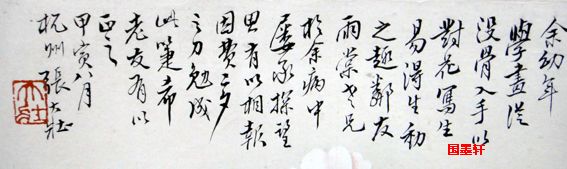 余幼年
學畫從
没骨入手以
對花寫生
易得生動
之趣鄰友
雨棠老兄
於余病中
屢承探望
思有以相報
因費二夕
之力勉成
此箑希
老友有以
正之
甲寅八月
杭州張大壯
大壯
国墨轩